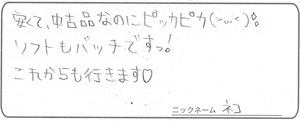 安くて、中古品なのにピッカピカ(>ω<)!!
ソフトもバッチですっ!
これからも行きます♡
ニックネーム ネコ